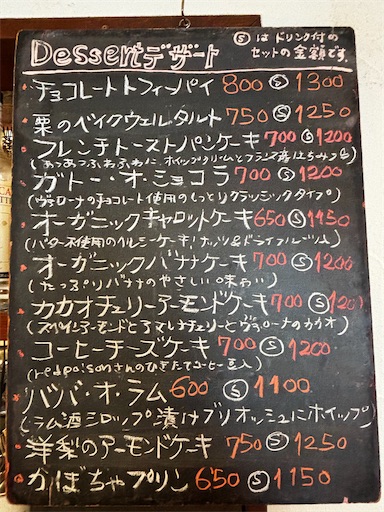 Dessertデザート
Ⓢはドリンク付の
セットの金額です。
チョコレートトフィーパイ 800 Ⓢ 1300
栗のベイクウェルタルト 750 Ⓢ 1250
フレンチトーストパンケーキ 700 Ⓢ 1200
(あつあつふわふわに ホイップクリームとフランス産はちみつ
ガトー・オ・ショコラ 700 Ⓢ 1200
(ヴァローナのチョコレート使用のしっとりクラシックタイプ)
オーガニックキャロットケーキ 650 Ⓢ 1150
(バター不使用のヘルシーケーキ!ナッツ&ドライフルーツ入)
オーガニックバナナケーキ 700 Ⓢ 1200
(たっぷりバナナのやさしい味わい)
カカオチェリーアーモンドケーキ 700 Ⓢ 1200
(スペインアーモンドとアマレナチェリーとヴァローナのカカオ)
コーヒーチーズケーキ 700 Ⓢ 1200
(redpoisonさんのひきたてコーヒー豆入)
ババ・オ・ラム 600 Ⓢ 1100
(ラム酒シロップ漬けブリオッシュにホイップ)
洋梨のアーモンドケーキ 750 Ⓢ 1250
かぼちゃプリン 650 Ⓢ 1150